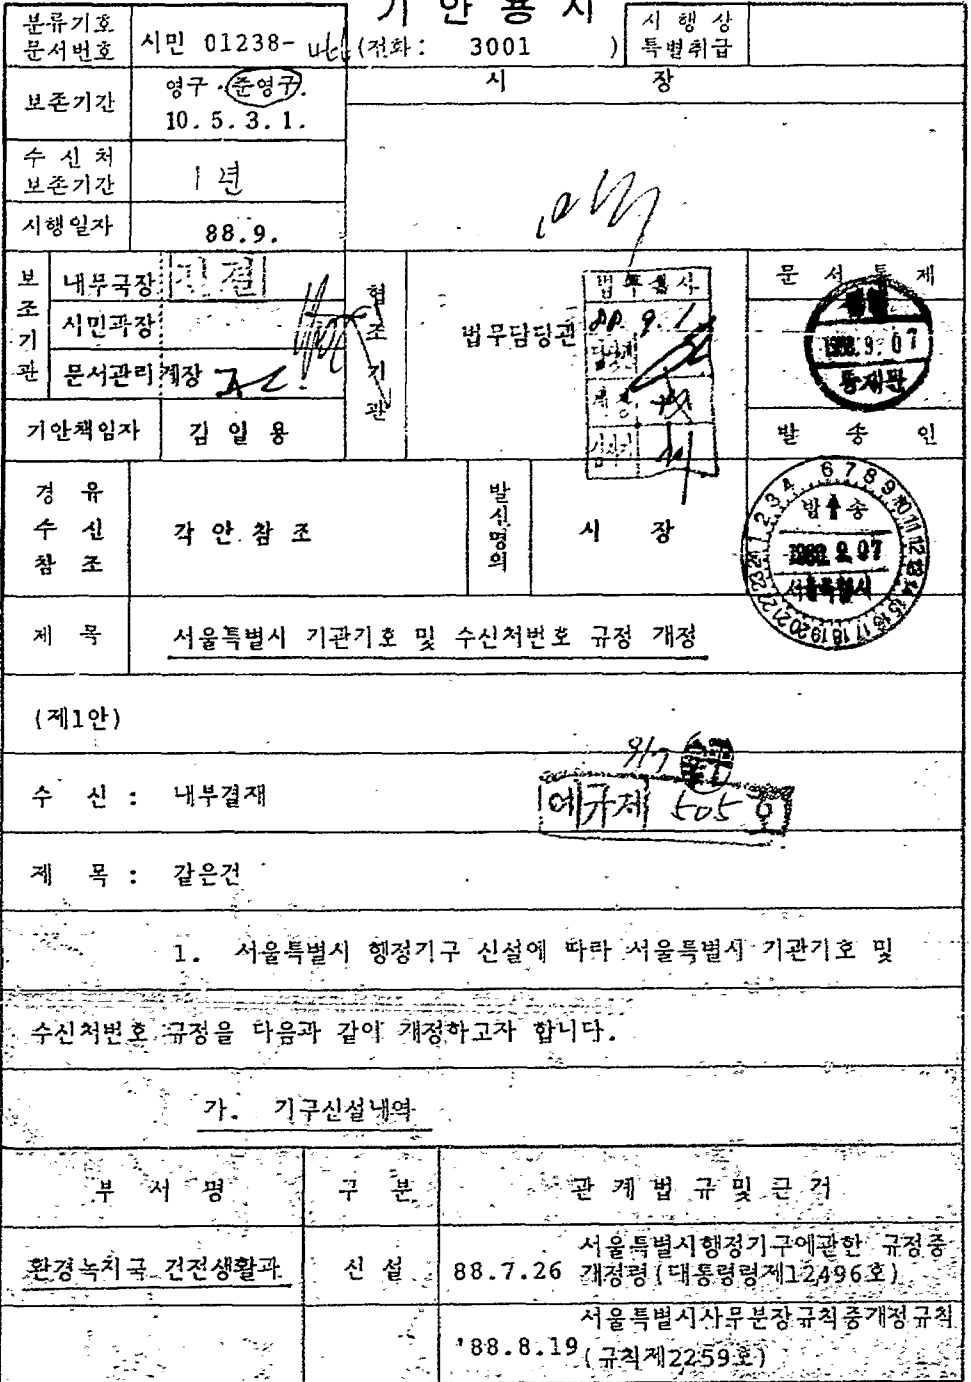 기 안 용 지
분류기호
문서번호
시민 01238-
(전화: 3001 )
시 행 상
특별취급
보존기간
영구·준영구.
10. 5. 3. 1.
시 장
수 신 처
보존기간
1 년
시행일자
88.9.
보조기관
내무국장
시민과장
문서관리계장
협조기관
법무담당관
법무심사
88. 9. 1
문 서 통 제
1988. 9. 07
통제관
기안책임자
김 일 용
발 송 인
경 유
수 신
참 조
각 안 참 조
발신명의
시 장
발 송
1988. 9. 07
서울특별시
제 목
서울특별시 기관기호 및 수신처번호 규정 개정
(제1안)
9/7
수 신 : 내부결재
예규제 505 호
제 목 : 같은건
1. 서울특별시 행정기구 신설에 따라 서울특별시 기관기호 및
수신처번호 규정을 다음과 같이 개정하고자 합니다.
가. 기구신설내역
부 서 명
구 분
관 계 법 규 및 근 거
환경녹지국 건전생활과
신 설
88.7.26
서울특별시행정기구에관한 규정중
개정령(대통령령제12496호)
'88.8.19
서울특별시사무분장규칙중개정규칙
(규칙제2259호)